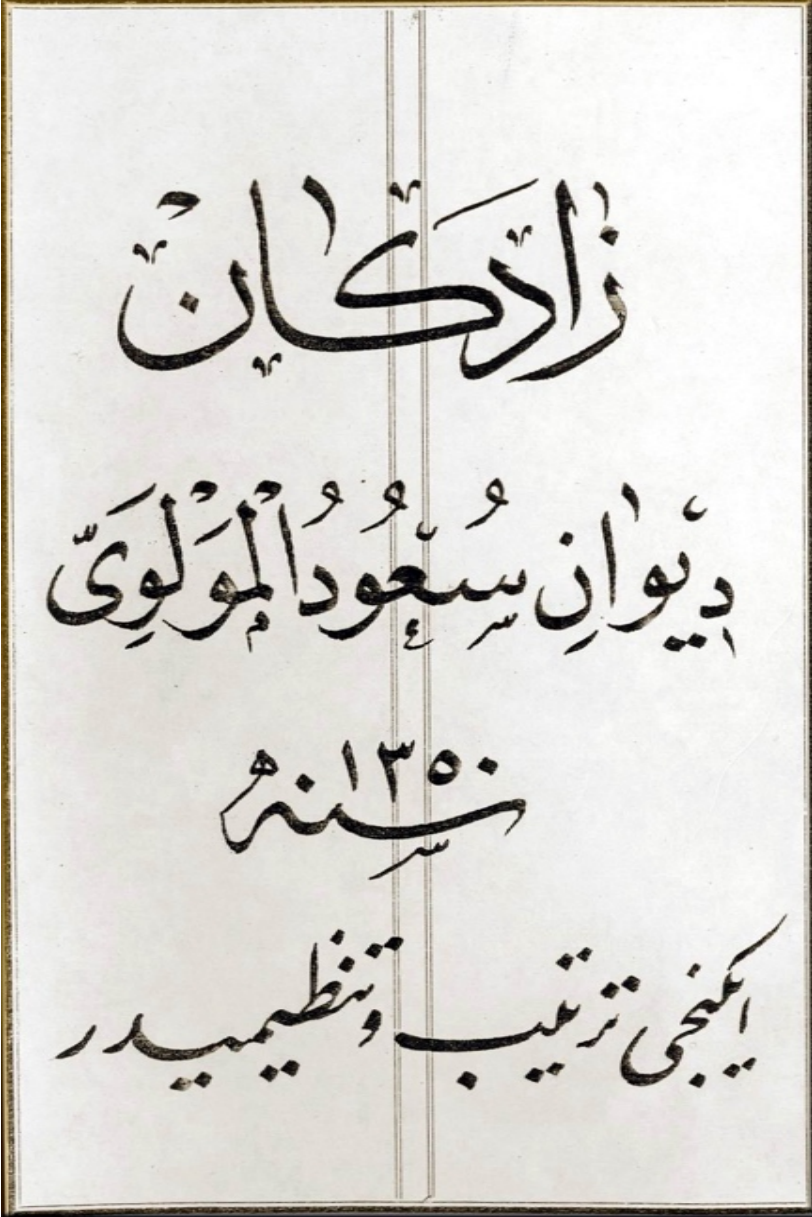 زادكان
ديوانِ سُعُودُ الْمَوْلَوِىّ
سنه ١٣٥٠
ايكنجى ترتيب و تنظيميدر